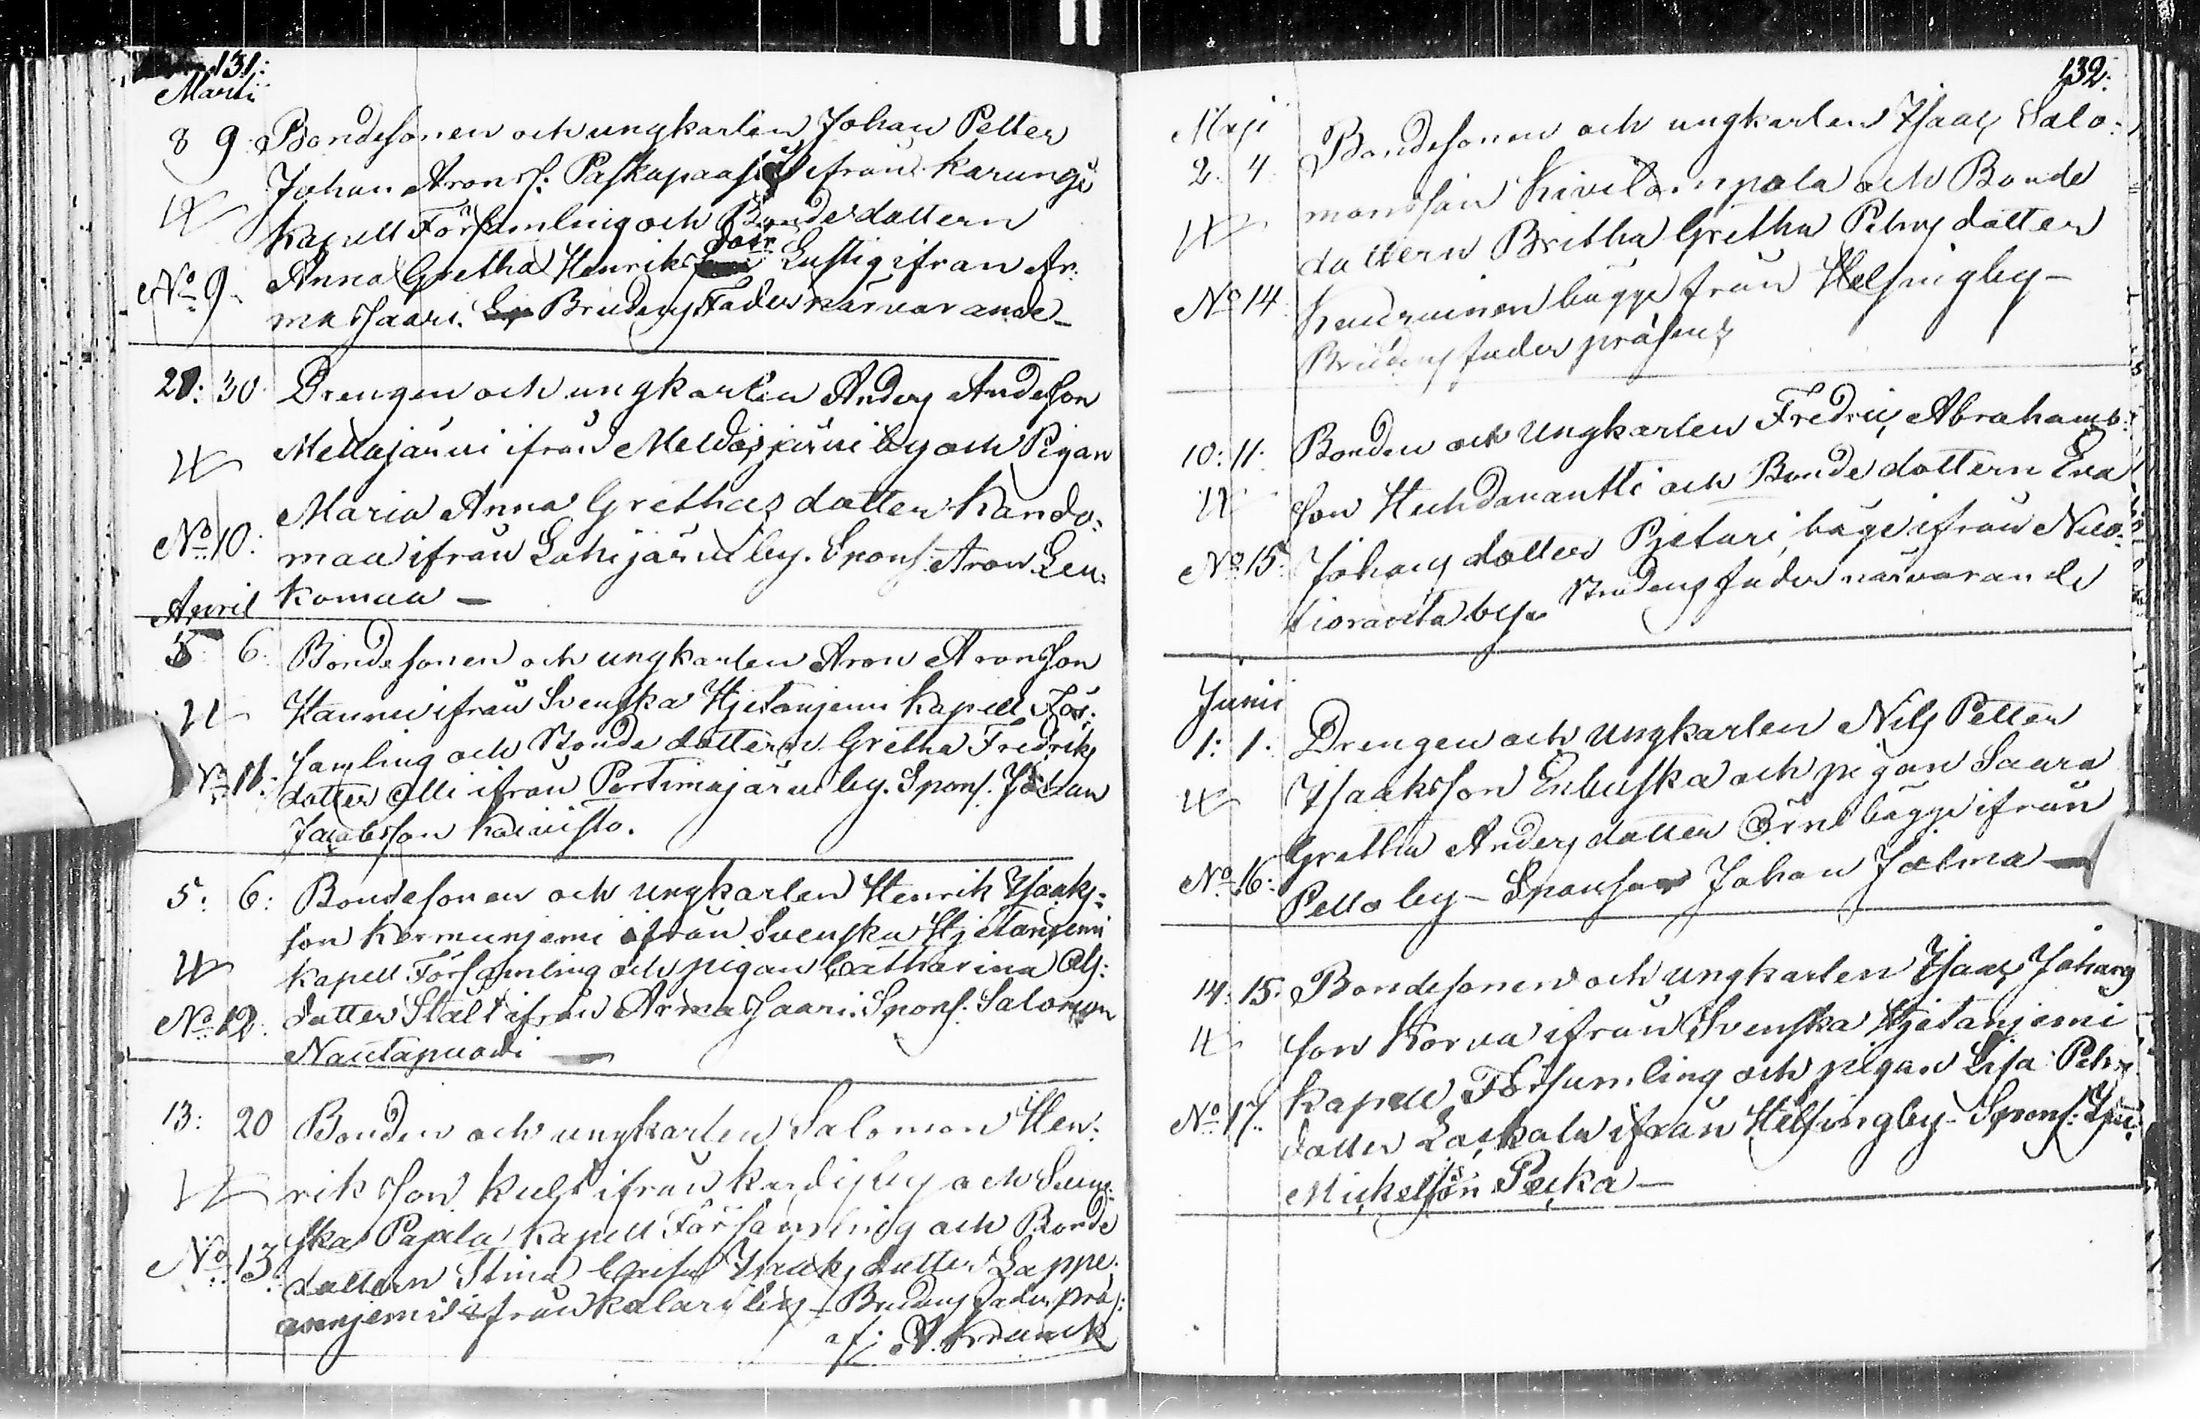 131:
Martii
8 9 Bondesonen och ungkarlen Johan Petter
Johan Arons: Paskapaasi ifrån Karungi
Kapell Församling och Bondedottern
dotr
No 9. Anna Gretha Henriks Lustig ifrån Ar:
masaari. Brudens Fader närvarande
28: 30 Drengen och ungkarlen Anders Anderson
Mellajärvi ifrån Meldojärvi by och Pigan
Maria Anna Grethas dotter Kando:
No 10: maa ifrån Lohijärvi by. Spons. Aron Leu:
komaa —
April
5 6: Bondesonen och ungkarlen Aron Aronsson
Hannu ifrån Svenska Hjetanjemi Kapell För:
samling och Bonde dottern Gretha Fredriks
No 11: dotter Olli ifrån Portimojärvi by. Spons. Johan
Jacobsson Koivisto.
5: 6: Bondesonen och ungkarlen Henrik Isaaks:
son Kermunjemi ifrån Svenska Hjetanjemi
Kapell Församling och pigan Catharina Ols:
No 12. dotter Stålt ifrån Armasaari. Spons. Salomon
Nautapuodi —
13: 20 Bonden och ungkarlen Salomon Hen:
rikson Kult ifrån Kardisby och Sven:
ska Pajala Kapell Församling och Bonde
No 13 dottern Stina Caisa Isaaks dotter Lappe:
anjemi ifrån Kolari by – Brudens Fader präs:
af:
132:
Maji
2. 4. Bondesonen och ungkarlen Isaac Salo:
monsson Kivilompola och Bonde
dottern Britha Gretha Peters dotter
No 14 Keuruinen bägge från Helsingby —
Brudens fader präsens
10: 11: Bonden och Ungkarlen Fredric Abrahams:
son Huhdanantti och Bonde dottern Eva
No 15: Johans dotter Pjetari, bäge ifrån Nuo:
tioranta by. Brudens fader närvarande
Junii
1: 1: Drengen och Ungkarlen Nils Petter
Isaksson Erbuska och pigan Saara
Gretha Anders dotter Örn bägge ifrån
No 16: Pello by – Sponsor Johan Jolma —
14: 15. Bondesonen och ungkarlen Isaac Johans
son Korva ifrån Svenska Hjetanjemi
Kapell Församling och pigan Lisa Peters
No 17. dotter Laskala ifrån Helsingby. Spons:
Mickelsson Pecka —